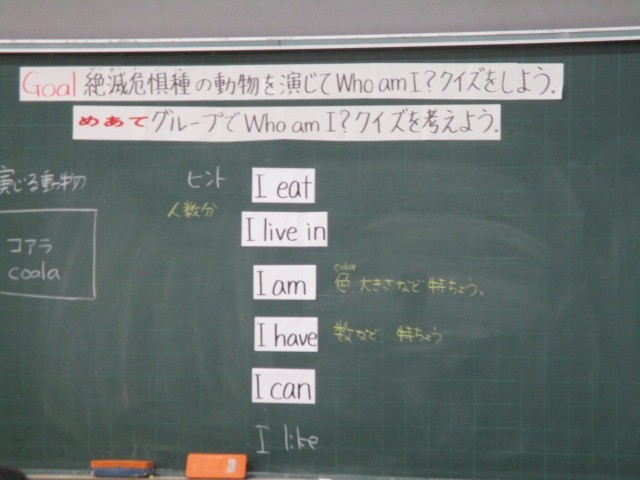 Goal 絶滅危惧種の動物を演じてWho am I?クイズをしよう.
めあて グループでWho am I?クイズを考えよう.
演じる動物
コアラ
coala
ヒント
人数分
I eat
I live in
I am
color
色 大きさなど 特ちょう、
I have
数など 特ちょう
I can
I like